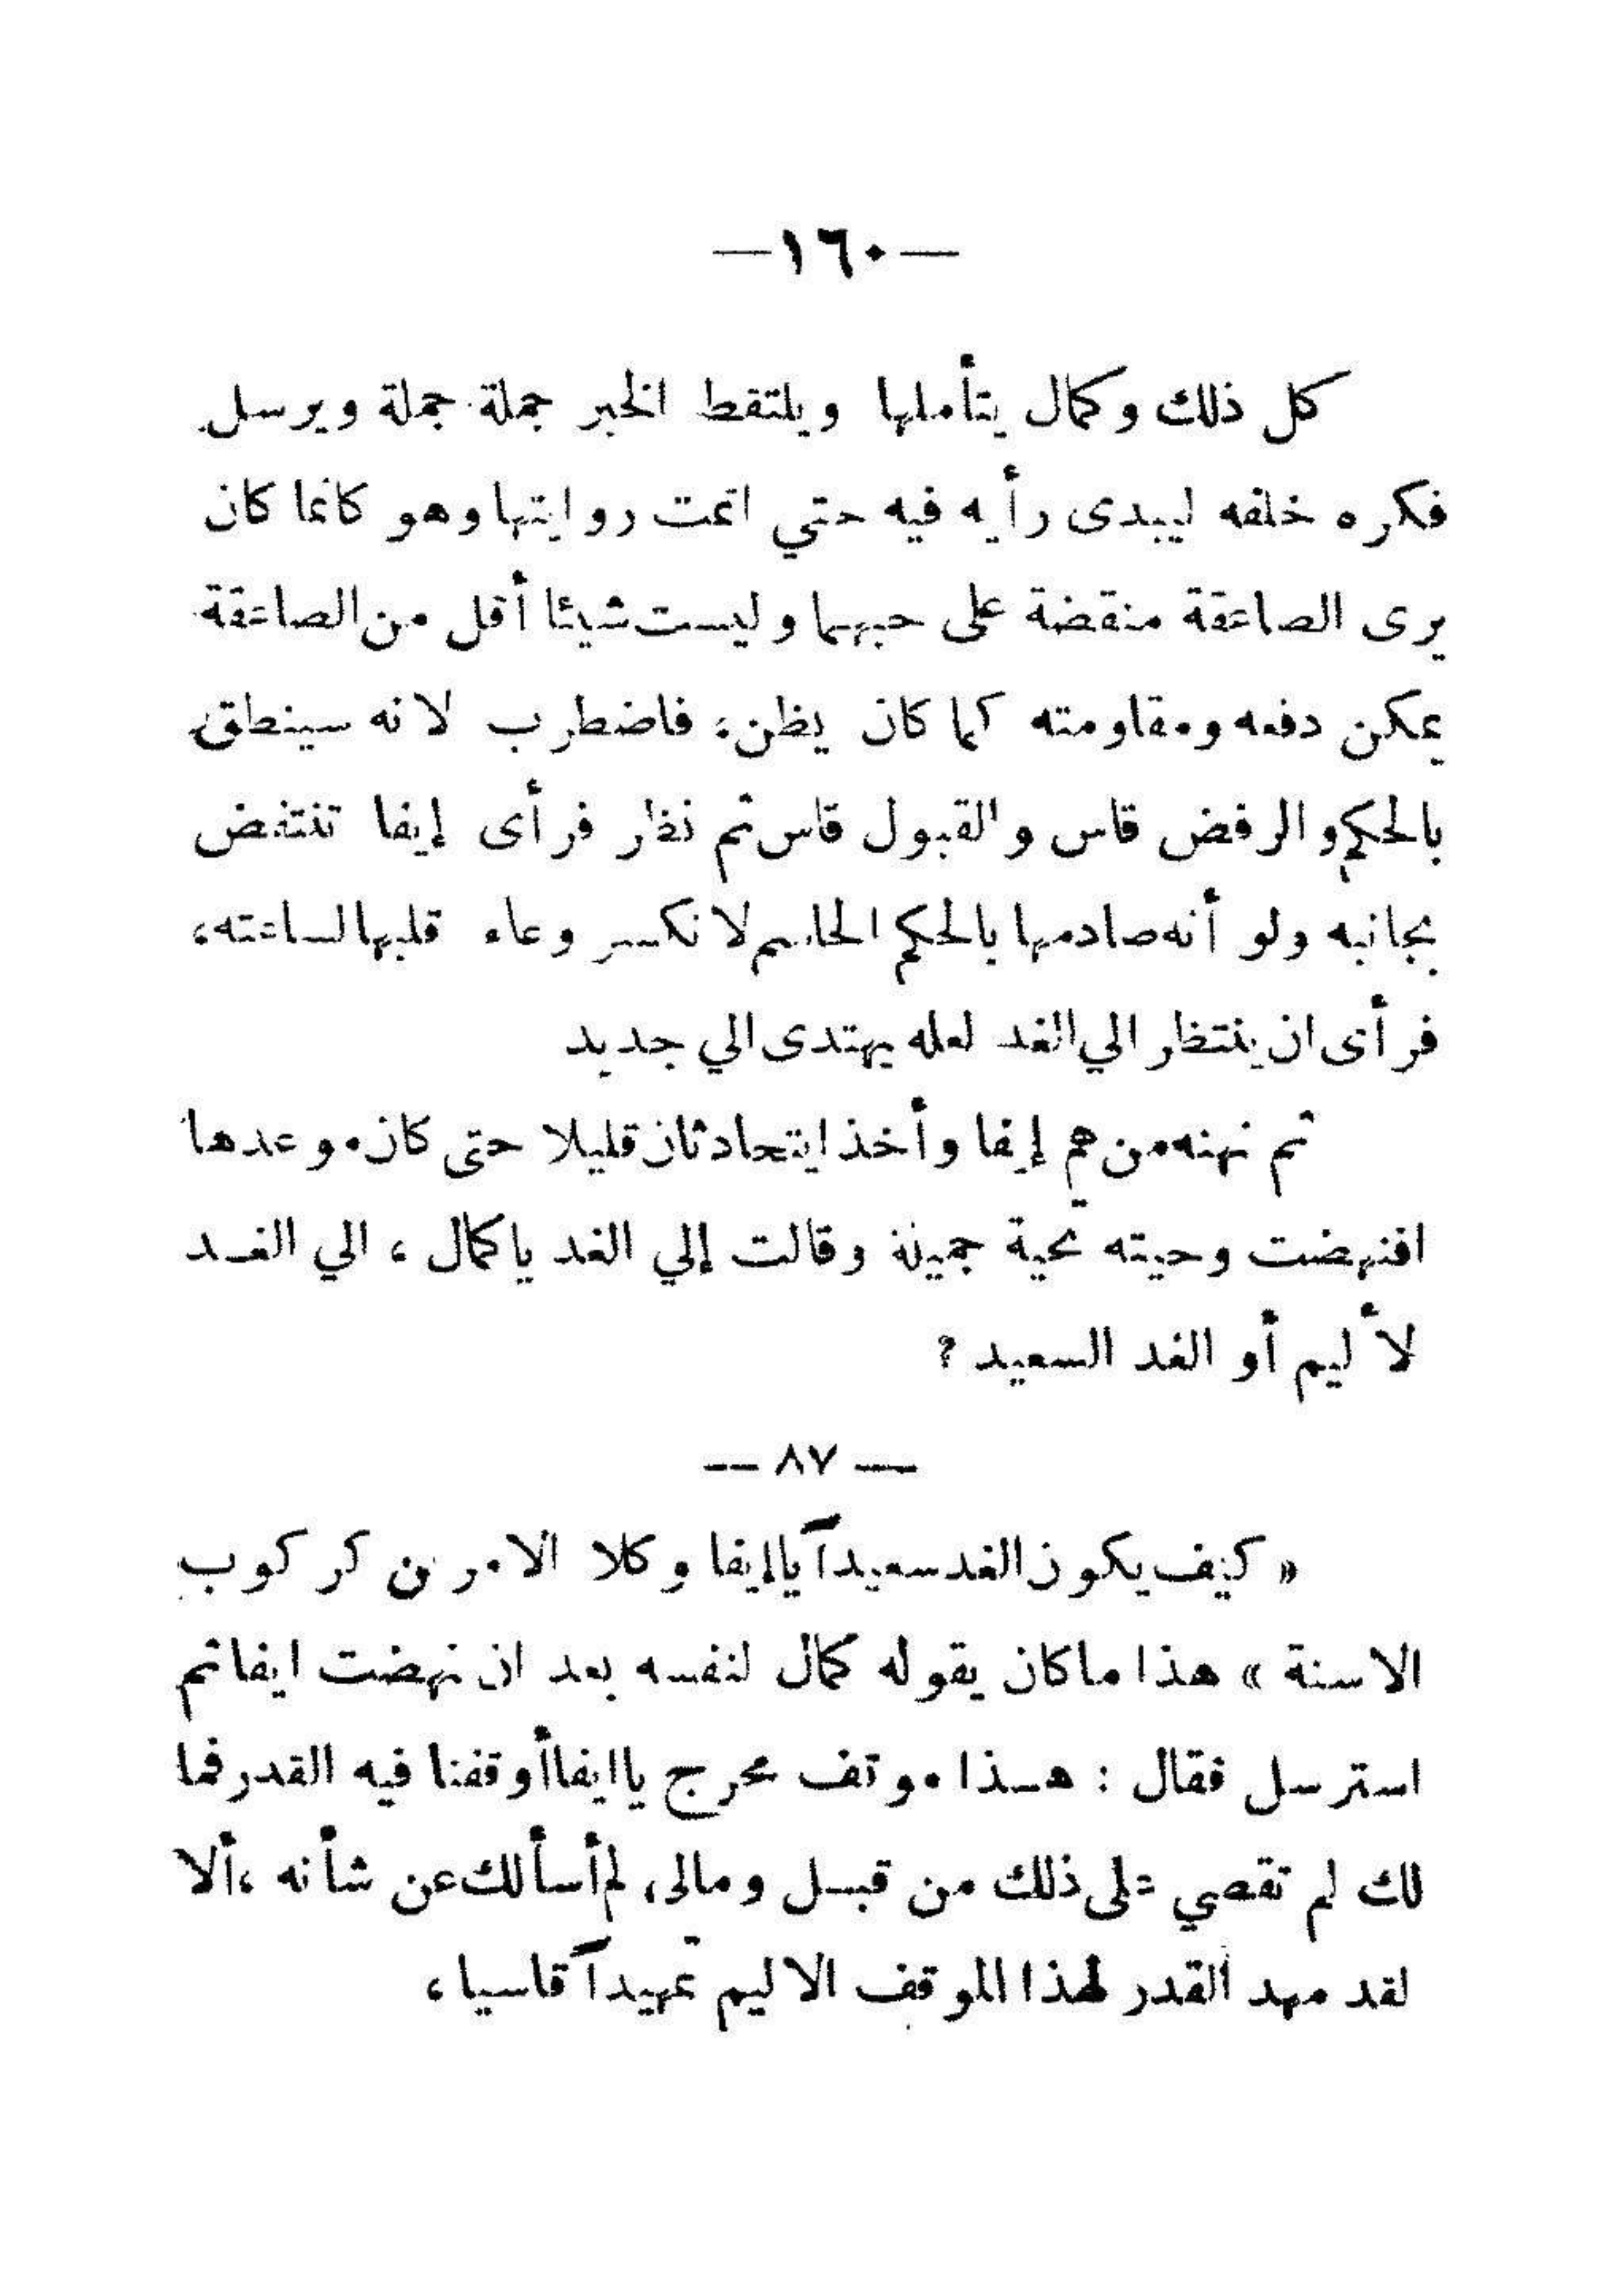 —١٦٠—
كل ذلك وكمال يتأملها ويلتقط الخبر جملة جملة ويرسل
فكره خلفه ليبدى رأيه فيه حتي اتمت روايتها وهو كانما كان
يرى الصاعقة منقضة على حبهما وليست شيئا أقل من الصاعقة
يمكن دفعه ومقاومته كما كان يظن؛ فاضطرب لانه سينطق
بالحكم والرفض قاس والقبول قاس ثم نظر فرأى إيفا تنتفض
بجانبه ولو أنه صادمها بالحكم الحاسم لانكسر وعاء قلبها لساعته،
فرأى ان ينتظر الي الغد لعله يهتدى الي جديد
ثم نهنه من هم إيفا وأخذا يتحادثان قليلا حتى كان موعدها
افنهضت وحيته تحية جميلة وقالت إلي الغد يا كمال ، الي الغد
لأليم أو الغد السعيد ؟
— ٨٧ —
« كيف يكون الغد سعيداً يا إيفا وكلا الامرين كركوب
الاسنة » هذا ما كان يقوله كمال لنفسه بعد ان نهضت ايفا ثم
استرسل فقال : هذا موقف محرج يا ايفا أوقفنا فيه القدر فما
لك لم تقصي على ذلك من قبل ومالى، لم أسألك عن شأنه ،ألا
لقد مهد القدر لهذا الموقف الاليم تمهيداً قاسيا ،